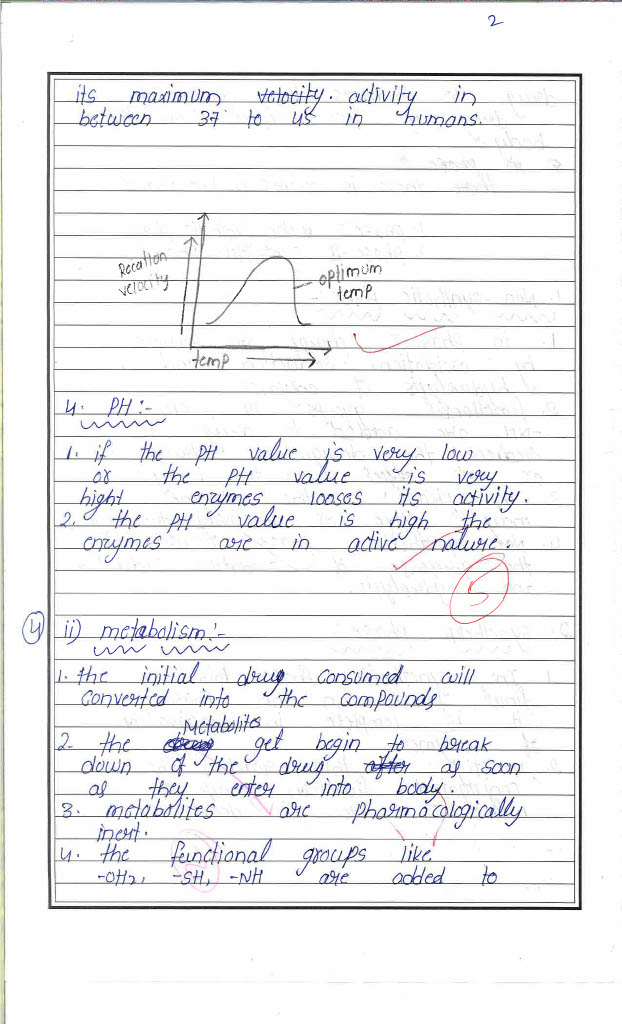 2
its maximum velocity. activity in
between 37 to 45 in humans.
Recation
velocity
optimum
temp
temp
4. PH :-
1. if the PH value is very low
or the PH value is very
hight enzymes looses its activity.
2. the PH value is high the
enzymes are in active nature.
5
4 ii) metabolism :-
1. the initial drug consumed will
converted into the compounds
Metabolites
2. the drug get begin to break
down of the drug after as soon
as they enter into body.
3. metabolites are pharmacologically
inert.
4. the functional groups like
-OH2, -SH, -NH are added to